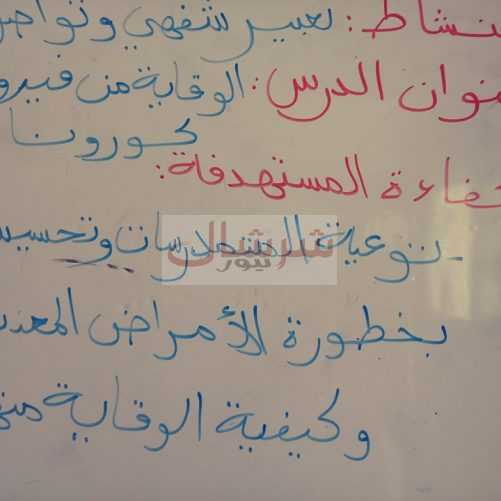 لنشاط: تعبير شفهي وتواصل
عنوان الدرس: الوقاية من فيرو
كورونا
كفاءة المستهدفة:
- توعية المتمدرسات وتحسيس
بخطورة الأمراض المعد
وكيفية الوقاية منها
شرشال نيوز